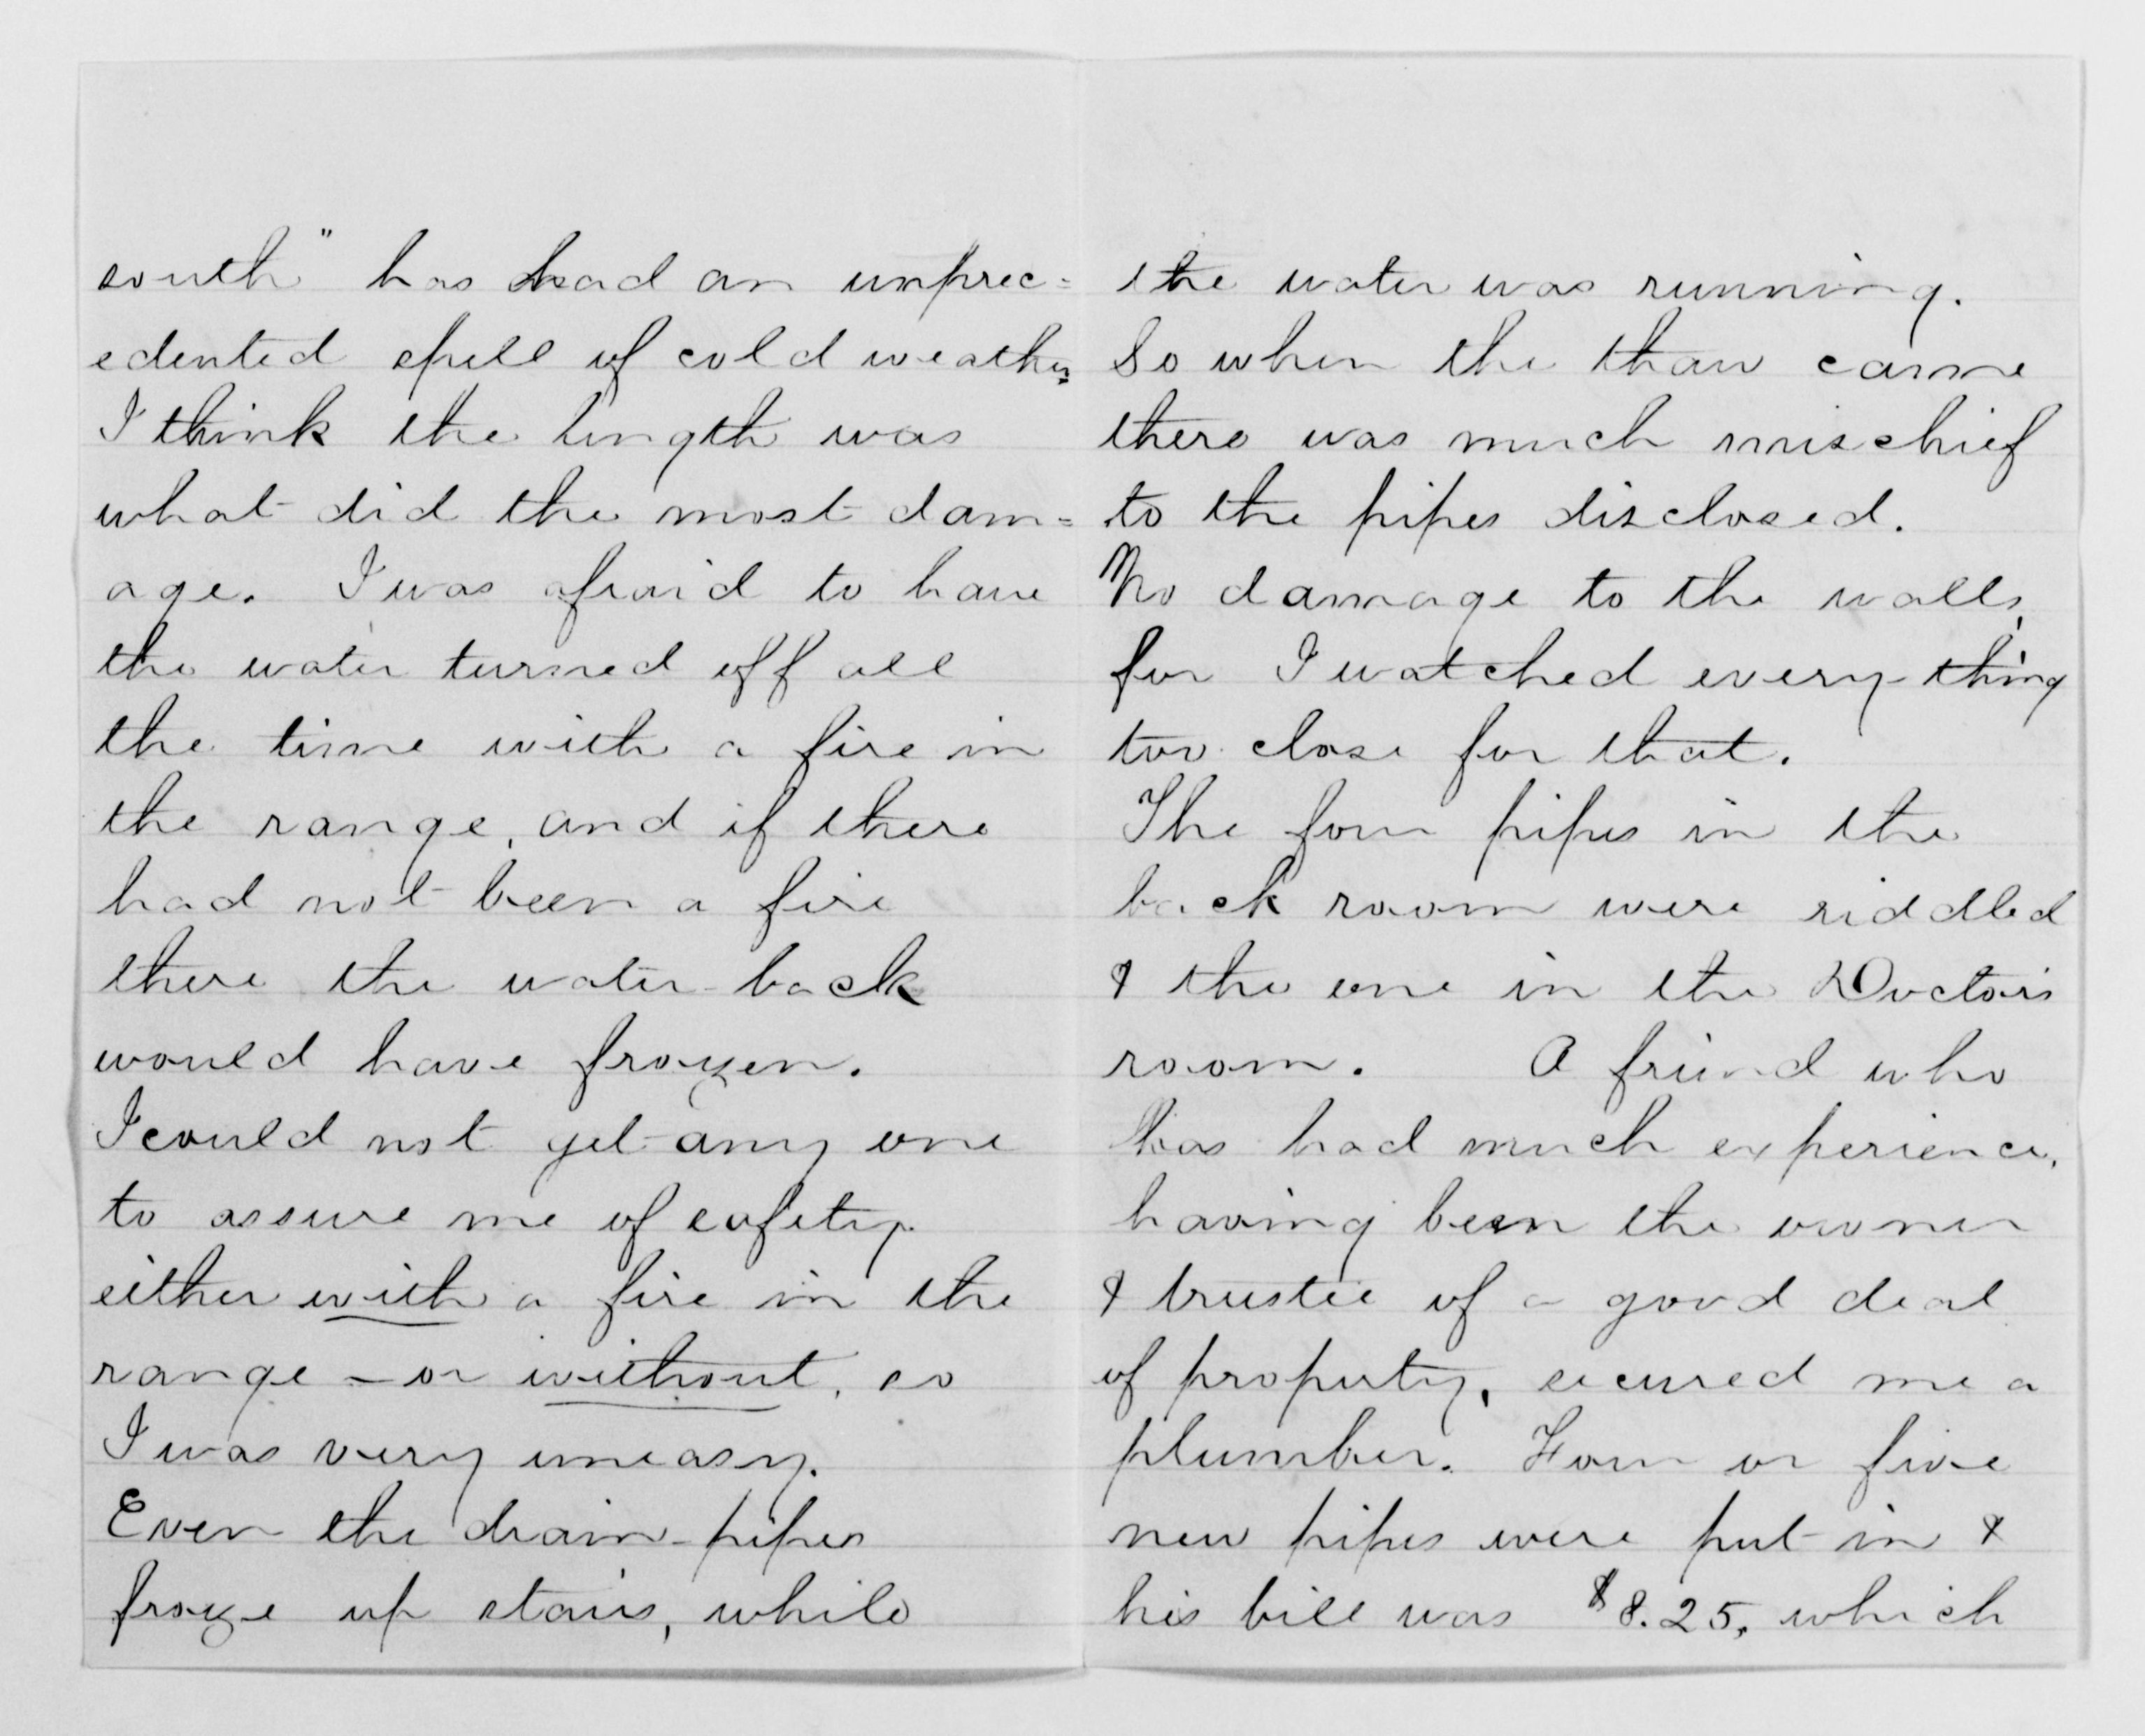 south" has had an unprec=
edented spell of cold weather
I think the length was
what did the most dam=
age. I was afraid to have
the water turned off all
the time with a fire in
the range, and if there
had not been a fire
there the water-back
would have frozen.
I could not get any one
to assure me of safety
either with a fire in the
range - or without, so
I was very uneasy.
Even the drain-pipes
froze up stairs, while
the water was running.
So when the thaw came
there was much mischief
to the pipes disclosed.
No damage to the walls,
for I watched every-thing
too close for that.
The four pipes in the
back room were riddled
& the one in the Doctors
room. A friend who
has had much experience,
having been the owner
& trustee of a good deal
of property, secured me a
plumber. Four or five
new pipes were put in &
his bill was $8.25, which